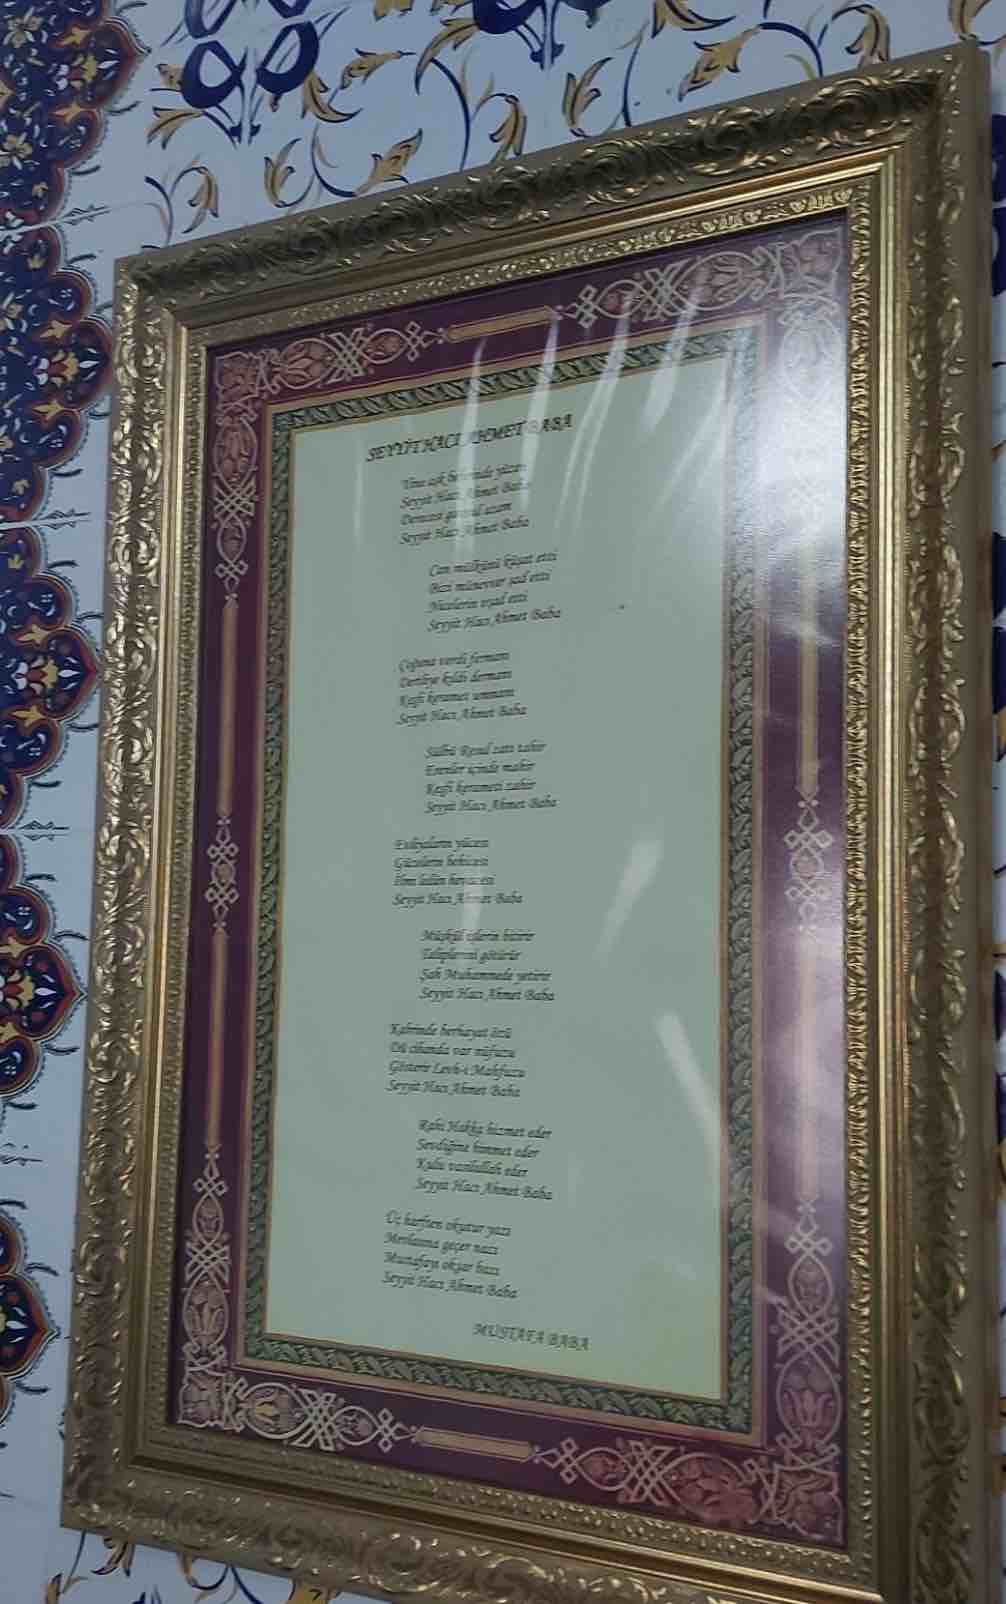 SEYYİT HACI AHMET BABA
Yine aşk
Seyyit Hacı Ahmet Baba
uzan
Seyyit Hacı Ahmet Baba
Can mülkünü küşat etti
Bizi münevver şad etti
Nicelerin irşad etti
Seyyit Hacı Ahmet Baba
Çoğuna verdi fermanı
Dertliye kıldı dermanı
Keşfi keramet ummanı
Seyyit Hacı Ahmet Baba
Sülbü Resul zatı tahir
Erenler içinde mahir
Keşfi kerameti zahir
Seyyit Hacı Ahmet Baba
Evliyaların yücesi
Güzelerin
İlmi ledün hevacesi
Seyyit Hacı Ahmet Baba
Müşkül işlerin bitirir
Taliplerini götürür
Şah Muhammede yetirir
Seyyit Hacı Ahmet Baba
Kabrinde berhayat özü
Dü cihanda var nüfuzu
Gösterir Levh-i Mahfuzu
Seyyit Hacı Ahmet Baba
Rahi Hakka hizmet eder
Sevdiğine himmet eder
Kulu vasılullah eder
Seyyit Hacı Ahmet Baba
Üç harften okutur yazı
Mevlasına geçer nazı
Mustafayı okşar bazı
Seyyit Hacı Ahmet Baba
MUSTAFA BABA